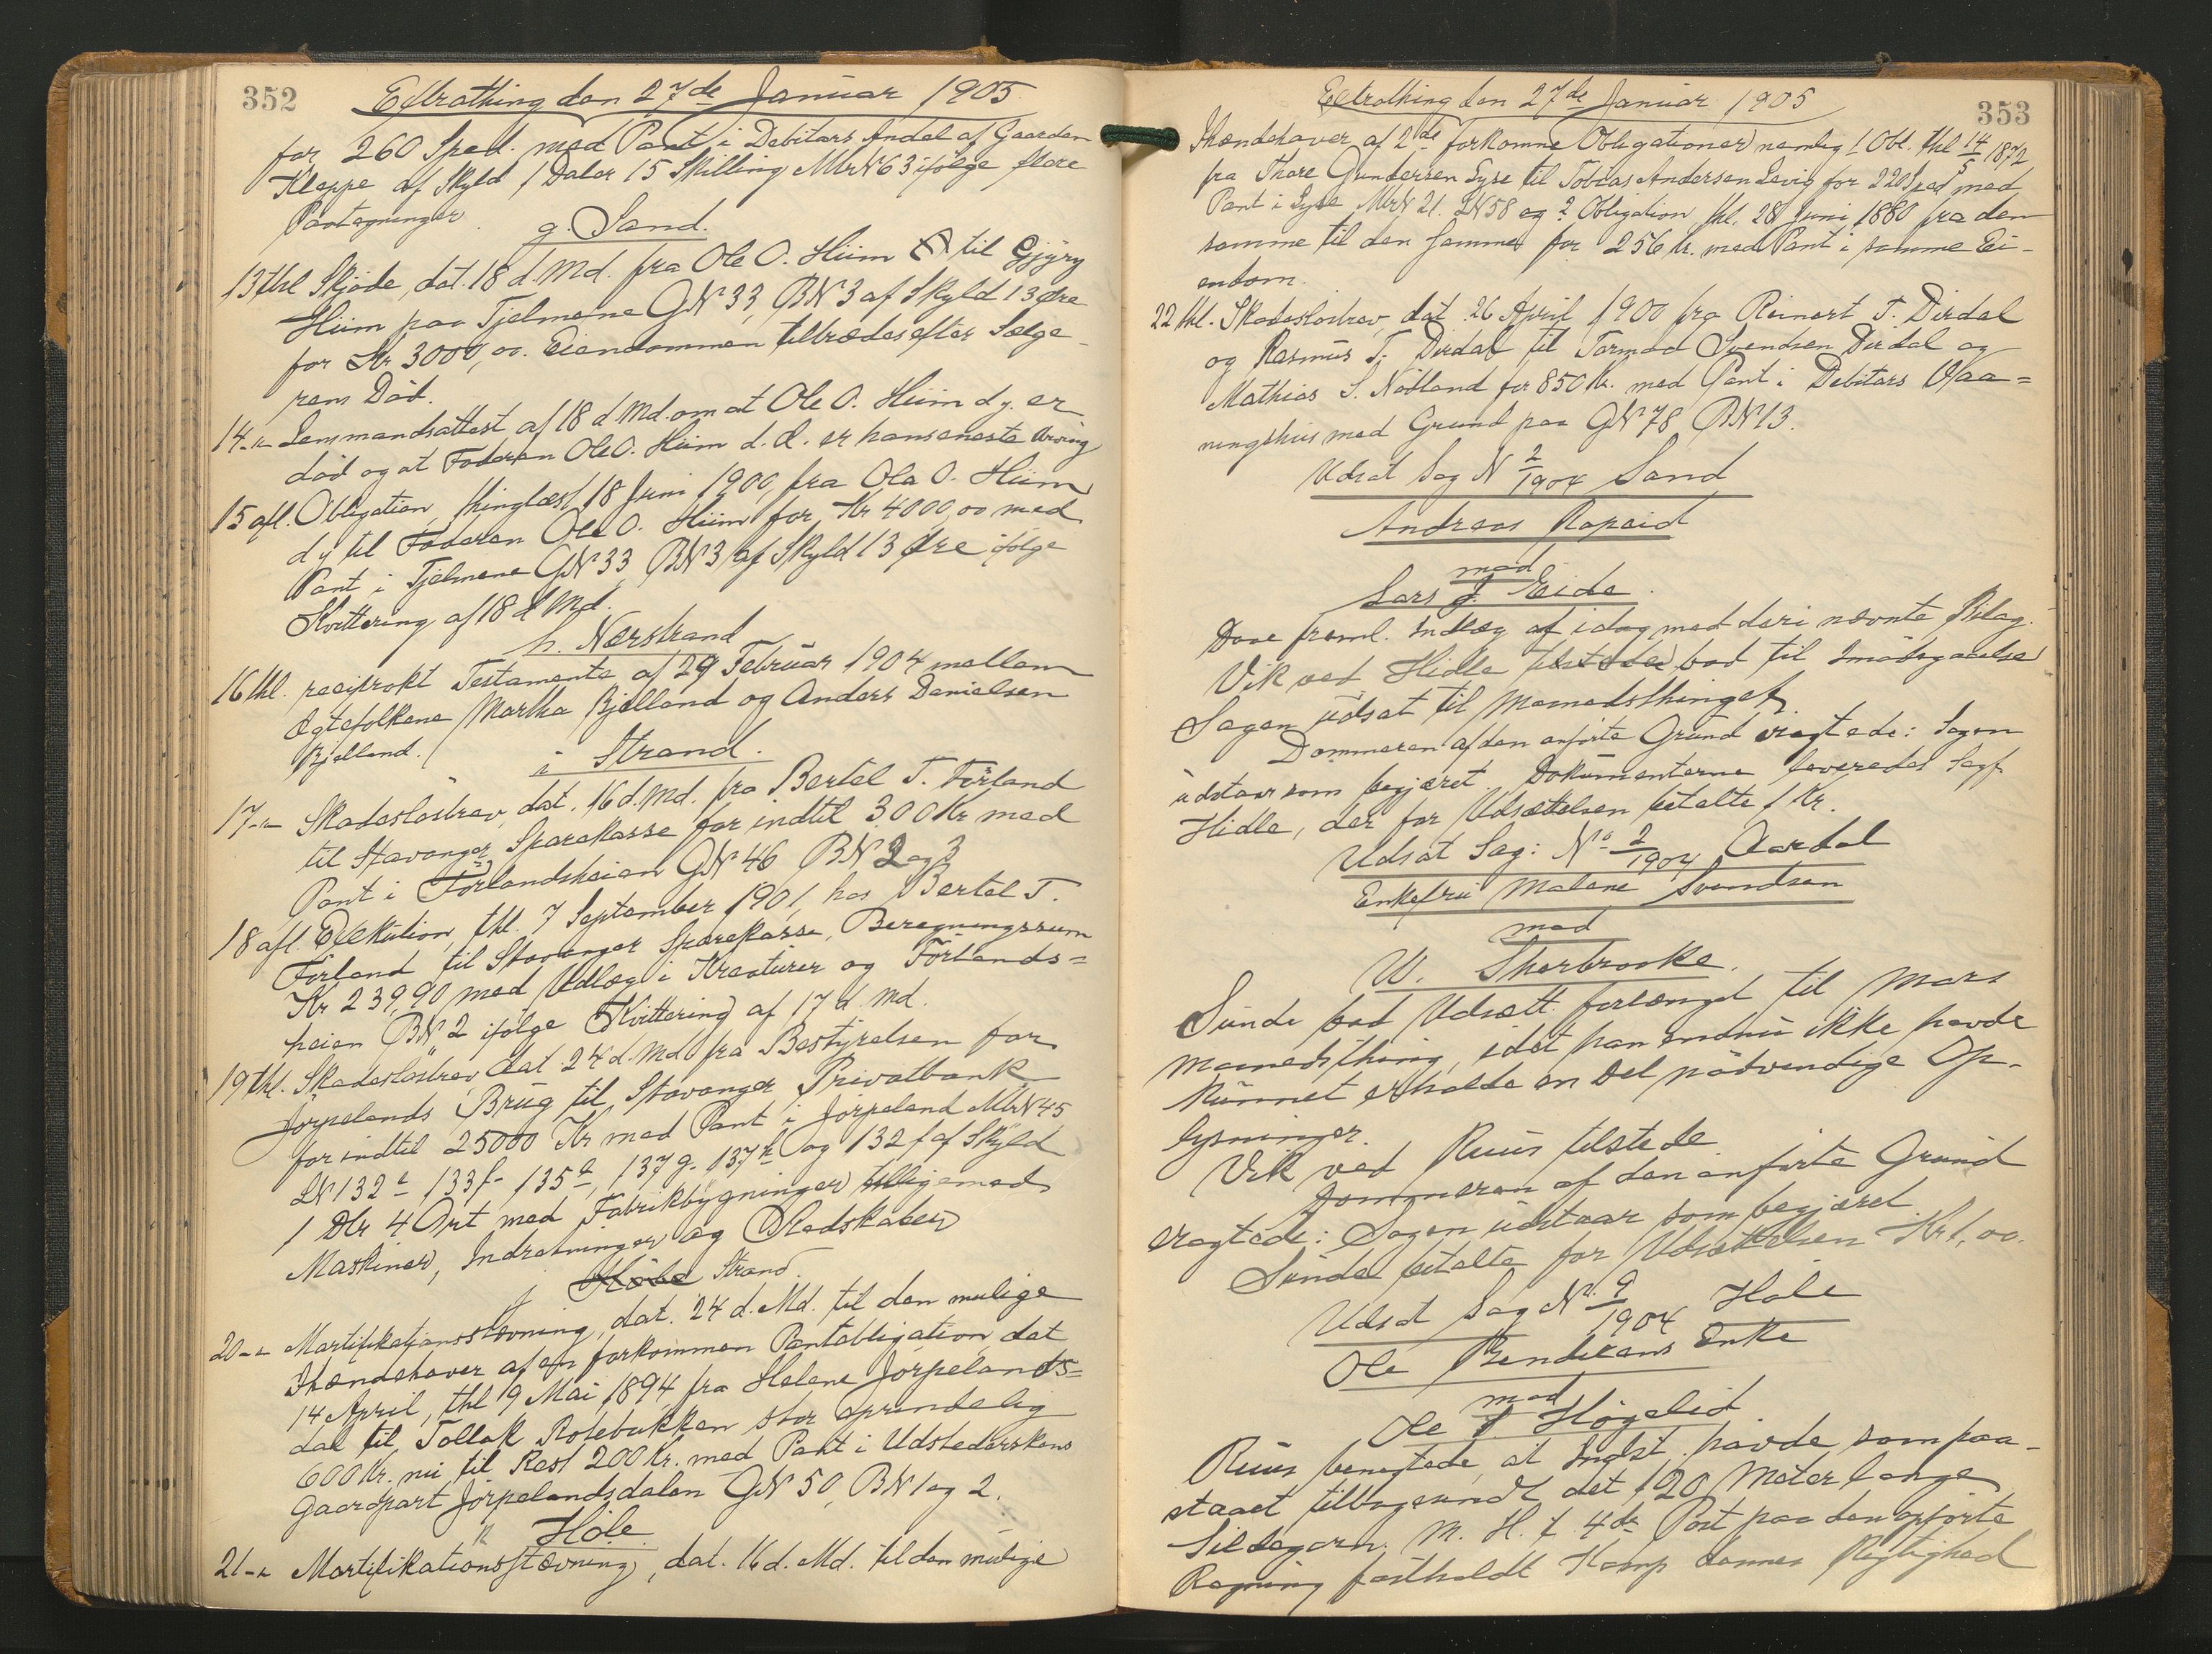 352
Extrathing den 27de Januar 1905
for 260 Sped. med Pant i Debitors Andel af Gaarden
Kleppe af Skyld 1 Daler 15 Skilling MtrN 63 ifölge flere
Paategninger.
g. Sand.
13 thl Skjöde, dat. 18 d. Md. fra Ole O. Hiim til Gjyry
Hiim paa Tjelmene GN 33, BN 3 af Skyld 13 Øre
for Kr. 3000,00. Eiendommen tiltrædes efter Sælge-
rens Död.
14 - " - Lensmandsattest af 18 d. Md. om at Ole O. Hiim d. y. er
död og at Faderen Ole O. Hiim d. æ. er hans eneste Arving
15 afl. Obligation, thinglæst 18 Juni 1900, fra Ole O. Hiim
d y til Faderen Ole O. Hiim for Kr 4000,00 med
Pant i Tjelmene GN 33, BN 3 af Skyld 13 Øre ifölge
Kvittering af 18 d Md.
h. Nærstrand
16 thl. reciprokt Testamente af 29 Februar 1904 mellem
Ægtefolkene Martha Bjelland og Anders Danielsen
Bjelland.
i Strand.
17 - " - Skadeslösbrev, dat. 16 d. Md. fra Bertel T. Förland
til Stavanger Sparekasse for indtil 300 Kr med
Pant i Förlandsheien GN 46 BN 2 og 3
18 afl. Exekution, thl. 7 September 1901, hos Bertel T.
Förland til Stavanger Sparekasse, Beregningssum
Kr 239,90, med Udlæg i Kreaturer og Förlands=
heien BN 2 ifölge Kvittering af 17 d. Md.
19 thl. Skadeslösbrev, dat 24 d. Md. fra Bestyrelsen for
Jörpelands Brug til Stavanger Privatbank
for indtil 25000 Kr med Pant i Jörpeland MtrN 45
LN 132 133 f- 135 137 g. 137 h og 132 f af Skyld
1 Dlr 4 Ort med Fabrikbygninger tilligemed
Maskiner, Indretninger og Redskaber
Strand
20 - " - Mortifikationsstævning, dat. 24 d. Md. til den mulige
Ihændehaver af en forkommen Pantobligation, dat
14 April, thl 19 Mai 1894, fra Helene Jörpelands=
dal til Tollak Rosebakken stor oprindelig
600 Kr. nu til Rest 200 Kr. med Pant i Udstederskens
Gaardpart Jörpelandsdalen GN 50, BN 1 og 2.
k Höle
21 - " - Mortifikationsstævning, dat. 16 d. Md. til den mulige
353
Extrathing den 27de Januar 1905
Ihændehaver af 2de forkomne Obligationer nemlig 1 Obl. thl 14/5 1872
fra Thore Gundersen Lyse til Tobias Andersen Levig for 220 Sped med
Pant i Lyse MtrN 21. LN 58 og 2 Obligation thl. 28 Juni 1880 fra den
samme til den samme for 256 Kr. med Pant i samme Ei-
endom.
22 thl. Skadeslösbrev, dat. 26 April 1900 fra Reinert T. Dirdal
og Rasmus T. Dirdal til Tormod Svendsen Dirdal og
Mathias S. Nödland for 850 Kr. med Pant i Debitors Vaa=
ningshus med Grund paa GN 78, BN 13.
Udsat Sag N 2/1904 Sand
Andreas Ropeid
mod
Lars J. Eide.
Dave freml. Indlæg af idag med deri nævnte Bilag.
Vik ved Hidle bad til Imödegaaelse
Sagen udsat til Maanedsthinget.
Dommeren af den anförte Grund eragtede: Sagen
udstaar som begjæret. Dokumenterne leveredes Sagf.
Hidle, der for Udsættelsen betalte 1 Kr.
Udsat Sag: No 2/1904 Aardal
Enkefru Malene Svendsen
mod
W. Sherbrooke.
Sunde bad Udsætt. forlænget til Mars
Maanedsthing, idet han endnu ikke havde
kunnet erholde en Del nödvendige Op-
lysninger.
Vik ved Ruus tilstede.
Dommeren af den anförte Grund
eragtede: Sagen udstaar som begjæret.
Sunde betalte for Udsættelsen Kr 1,00.
Udsat Sag No 9/1904 Höle
Ole Bendixens Enke
mod
Ole J Högelid
Ruus benegtede, at Indst. havde, som paa-
staaet tilbagesendt det 120 Meter lange
Sildegarn. M. H. t. 4de Post paa den opförte
Regning fastholdt Komp dennes Rigtighed